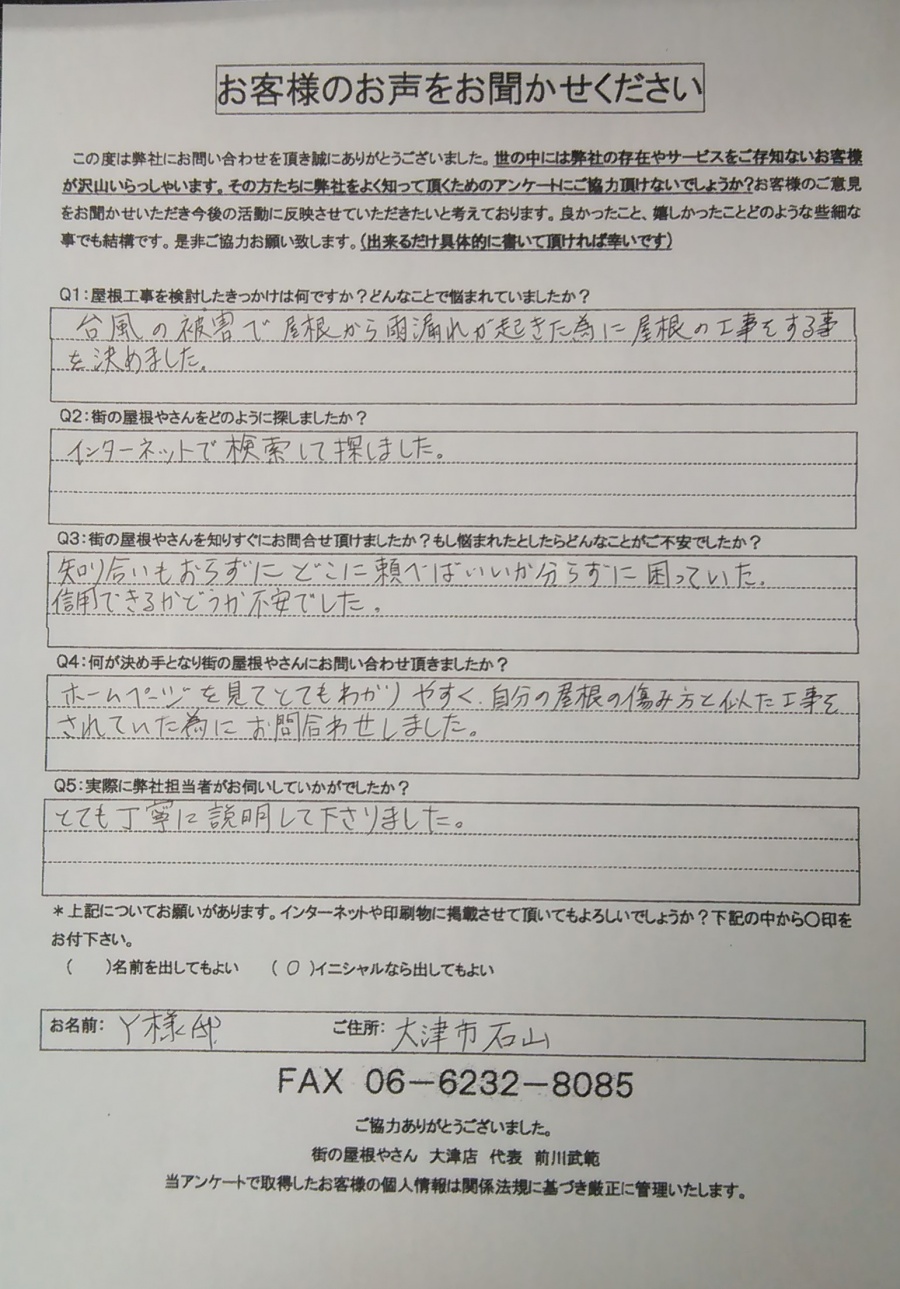 お客様のお声をお聞かせください
この度は弊社にお問い合わせを頂き誠にありがとうございました。世の中には弊社の存在やサービスをご存知ないお客様
が沢山いらっしゃいます。その方たちに弊社をよく知って頂くためのアンケートにご協力頂けないでしょうか?お客様のご意見
をお聞かせいただき今後の活動に反映させていただきたいと考えております。良かったこと、嬉しかったことどのような些細な
事でも結構です。是非ご協力お願い致します。(出来るだけ具体的に書いて頂ければ幸いです)
Q1:屋根工事を検討したきっかけは何ですか?どんなことで悩まれていましたか?
台風の被害で屋根から雨漏れが起きた為に屋根の工事をする事
を決めました。
Q2:街の屋根やさんをどのように探しましたか?
インターネットで検索して探しました。
Q3:街の屋根やさんを知りすぐにお問合せ頂けましたか?もし悩まれたとしたらどんなことがご不安でしたか?
知り合いもおらずにどこに頼べばいいか分らずに困っていた。
信用できるかどうか不安でした。
Q4:何が決め手となり街の屋根やさんにお問い合わせ頂きましたか?
ホームページを見てとてもわかりやすく、自分の屋根の傷み方と似た工事を
されていた為にお問合わせしました。
Q5:実際に弊社担当者がお伺いしていかがでしたか?
とても丁寧に説明して下さりました。
*上記についてお願いがあります。インターネットや印刷物に掲載させて頂いてもよろしいでしょうか?下記の中から〇印を
お付下さい。
( )名前を出してもよい (○)イニシャルなら出してもよい
お名前: Y様邸 ご住所: 大津市石山
FAX 06-6232-8085
ご協力ありがとうございました。
街の屋根やさん 大津店 代表 前川武範
当アンケートで取得したお客様の個人情報は関係法規に基づき厳正に管理いたします。